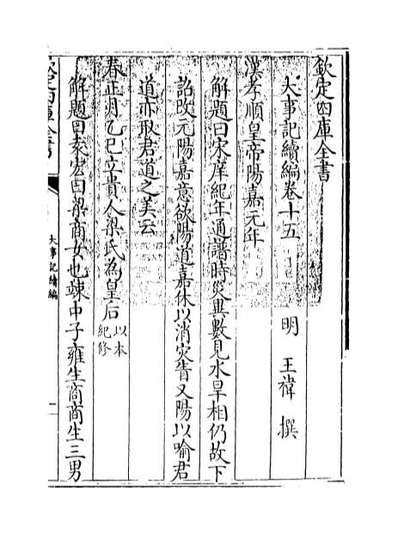 欽定四庫全書
大事記續編卷十五
明 王禕 撰
漢孝順皇帝陽嘉元年
解題曰宋庠紀年通譜時災異數見水旱相仍故下
詔改元陽嘉意欲陽道嘉休以消灾眚又陽以喻君
道亦取君道之美云
春正月乙巳立貴人梁氏為皇后以本紀修
解題曰袁宏曰梁商女也竦中子雍生商商生三男
欽定四庫全書
大事記續編